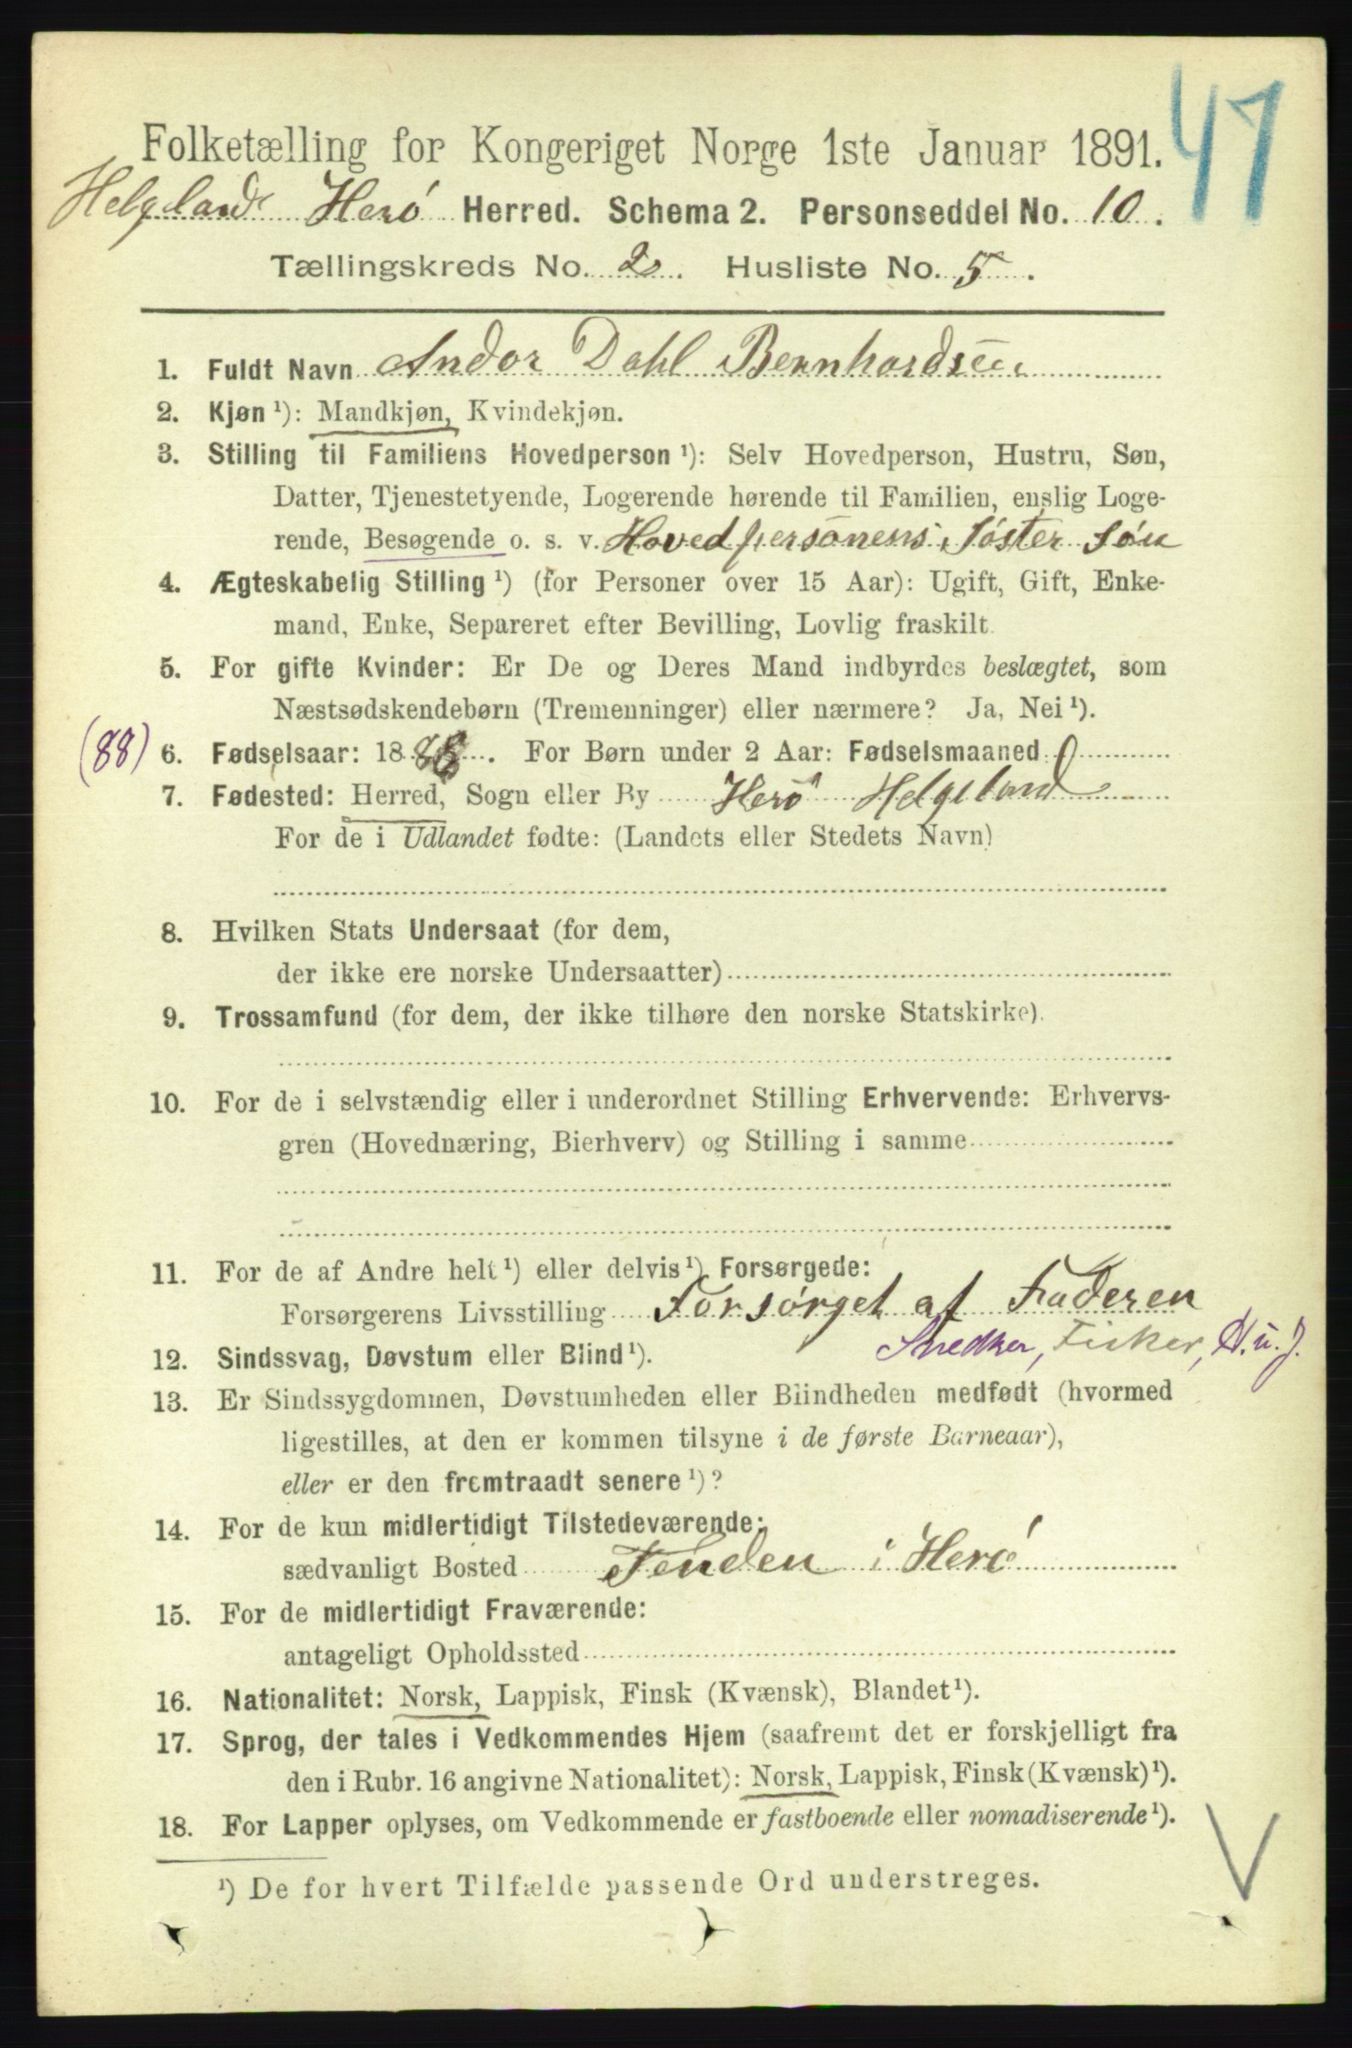 47
Folketælling for Kongeriget Norge 1ste Januar 1891.
Helgeland Herø Herred. Schema 2. Personseddel No. 10.
Tællingskreds No. 2. Husliste No. 5.
1. Fuldt Navn Andor Dahl Bernhardsen
2. Kjøn ¹): Mandkjøn, Kvindekjøn.
3. Stilling til Familiens Hovedperson ¹): Selv Hovedperson, Hustru, Søn,
Datter, Tjenestetyende, Logerende hørende til Familien, enslig Loge-
rende, Besøgende o. s. v. Hovedpersonens Søster Søn
4. Ægteskabelig Stilling ¹) (for Personer over 15 Aar): Ugift, Gift, Enke-
mand, Enke, Separeret efter Bevilling, Lovlig fraskilt.
5. For gifte Kvinder: Er De og Deres Mand indbyrdes beslægtet, som
Næstsødskendebørn (Tremenninger) eller nærmere? Ja, Nei ¹).
(88) 6. Fødselsaar: 1888. For Børn under 2 Aar: Fødselsmaaned
7. Fødested: Herred, Sogn eller By Herø Helgeland
For de i Udlandet fødte: (Landets eller Stedets Navn)
8. Hvilken Stats Undersaat (for dem,
der ikke ere norske Undersaatter)
9. Trossamfund (for dem, der ikke tilhøre den norske Statskirke).
10. For de i selvstændig eller i underordnet Stilling Erhvervende: Erhvervs-
gren (Hovednæring, Bierhverv) og Stilling i samme
11. For de af Andre helt ¹) eller delvis ¹) Forsørgede:
Forsørgerens Livsstilling Forsørget af Faderen
Snedker, Fisker,
12. Sindssvag, Døvstum eller Blind ¹).
13. Er Sindssygdommen, Døvstumheden eller Blindheden medfødt (hvormed
ligestilles, at den er kommen tilsyne i de første Barneaar),
eller er den fremtraadt senere ¹)?
14. For de kun midlertidigt Tilstedeværende:
sædvanligt Bosted Tenden i Herø
15. For de midlertidigt Fraværende:
antageligt Opholdssted
16. Nationalitet: Norsk, Lappisk, Finsk (Kvænsk), Blandet ¹).
17. Sprog, der tales i Vedkommendes Hjem (saafremt det er forskjelligt fra
den i Rubr. 16 angivne Nationalitet): Norsk, Lappisk, Finsk (Kvænsk) ¹).
18. For Lapper oplyses, om Vedkommende er fastboende eller nomadiserende ¹).
¹) De for hvert Tilfælde passende Ord understreges.